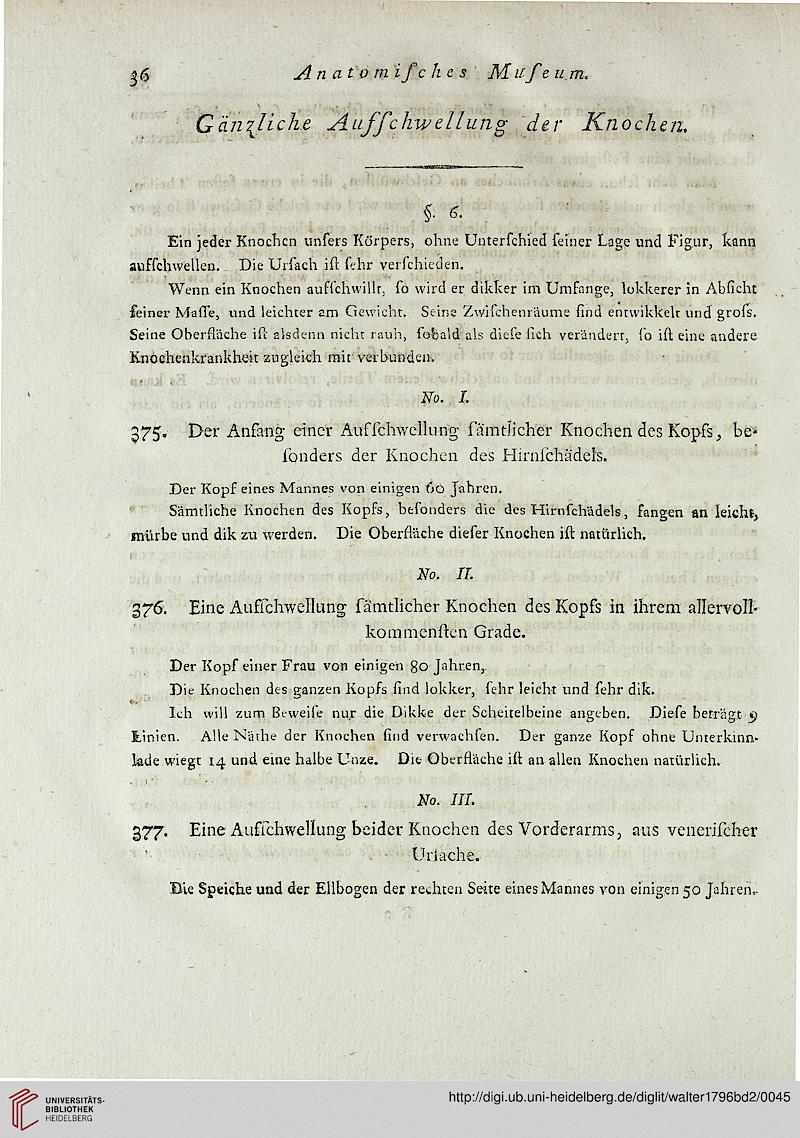 36 Anatomiſches Muſeum.
Gänzliche Aufſchwellung der Knochen.
§. 6.
Ein jeder Knochen unſers Körpers, ohne Unterſchied ſeiner Lage und Figur, kann
aufſchwellen. Die Urſach iſt ſehr verſchieden.
Wenn ein Knochen aufſchwillt, ſo wird er dikker im Umfange, lokkerer in Abſicht
ſeiner Maſſe, und leichter am Gewicht. Seine Zwiſchenräume ſind entwikkelt und groſs.
Seine Oberfläche iſt alsdenn nicht rauh, ſobald als dieſe ſich verändert, ſo iſt eine andere
Knochenkrankheit zugleich mit verbunden.
No. I.
375. Der Anfang einer Aufſchwellung ſämtlicher Knochen des Kopfs, be-
ſonders der Knochen des Hirnſchädels.
Der Kopf eines Mannes von einigen 60 Jahren.
Sämtliche Knochen des Kopfs, beſonders die des Hirnſchädels, fangen an leicht,
mürbe und dik zu werden. Die Oberfläche dieſer Knochen iſt natürlich.
No. II.
376. Eine Aufſchwellung ſämtlicher Knochen des Kopfs in ihrem allervoll-
kommenſten Grade.
Der Kopf einer Frau von einigen 80 Jahren.
Die Knochen des ganzen Kopfs ſind lokker, ſehr leicht und ſehr dik.
Ich will zum Beweiſe nur die Dikke der Scheitelbeine angeben. Dieſe beträgt 9
Linien. Alle Näthe der Knochen ſind verwachſen. Der ganze Kopf ohne Unterkinn-
lade wiegt 14 und eine halbe Unze. Die Oberfläche iſt an allen Knochen natürlich.
No. III.
377. Eine Aufſchwellung beider Knochen des Vorderarms, aus veneriſcher
Urſache.
Die Speiche und der Ellbogen der rechten Seite eines Mannes von einigen 50 Jahren.
UNIVERSITÄTS-
BIBLIOTHEK
HEIDELBERG
http://digi.ub.uni-heidelberg.de/diglit/walter1796bd2/0045